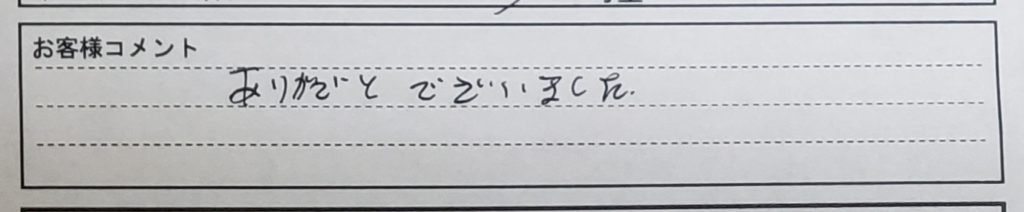 お客様コメント
ありがでと でざいいました.